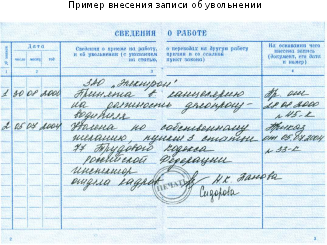 Пример внесения записи об увольнении
СВЕДЕНИЯ О РАБОТЕ
Дата
Сведения о приеме на работу, о переводах на другую работу и об увольнении (с указанием причин и со ссылкой на статью, пункт закона)
На основании чего внесена запись (документ, его дата и номер)
1 2 3 4
ЗАО „Электрон"
1 30 08 2000 Принята в канцелярию Пр. от
на должность делопроиз- 28.08.2000
водителя № 45-к
2 05 07 2004 Уволена по собственному Приказ
желанию, пункт 3 статьи от 05.07.2004
77 Трудового кодекса № 33-к
Российской Федерации
инспектор
отдела кадров Н.К. Панова
ПЕЧАТЬ
Сидорова